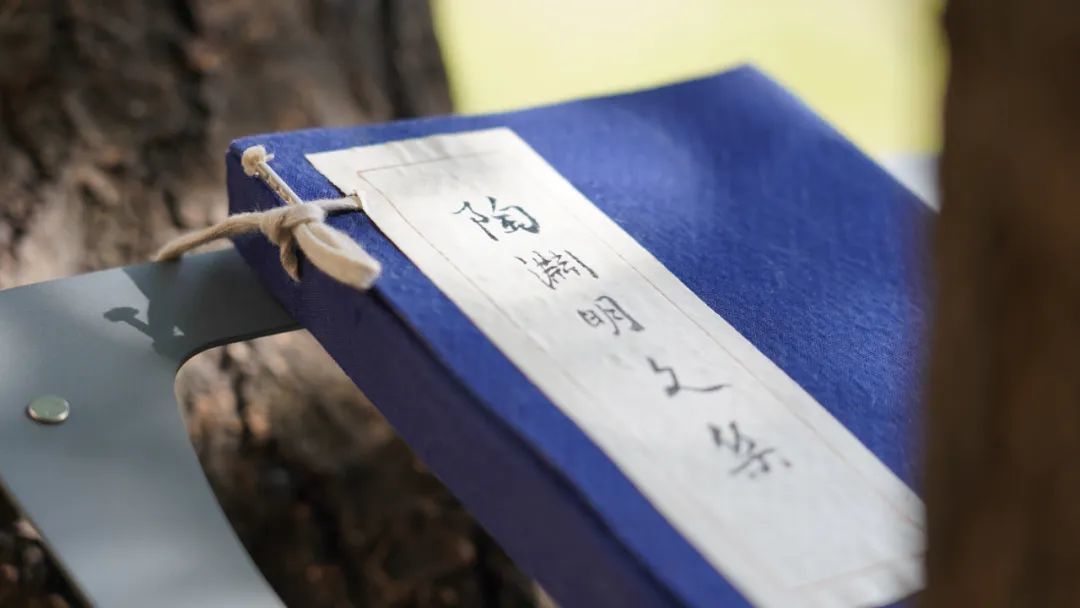 陶渊明文集